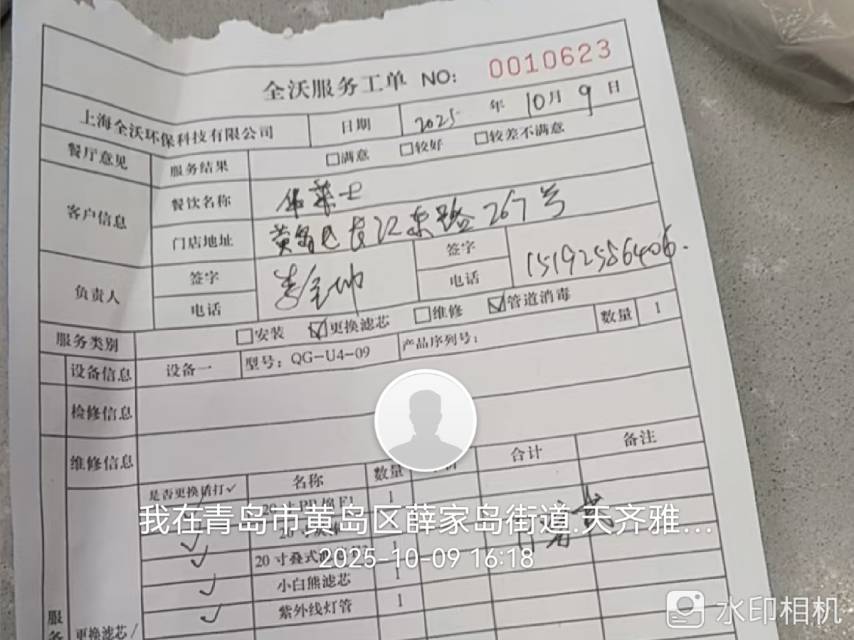 全沃服务工单 NO: 0010623
上海全沃环保科技有限公司 日期 2025 年 10月 9 日
餐厅意见 服务结果 □满意 □较好 □较差不满意
客户信息 餐饮名称 华莱士
门店地址 黄岛区长江东路267号
负责人 签字 签字
电话 电话 15192586406.
服务类别 □安装 ☑更换滤芯 □维修 ☑管道消毒
设备信息 设备一 型号: QG-U4-09 产品序列号: 数量 1
检修信息
维修信息
是否更换请打✓ 名称 数量 合计 备注
✓ 20寸PP棉 1
我在青岛市黄岛区薛家岛街道.天齐雅...
✓ 20寸叠式
2025-10-09 16:18
✓ 小白熊滤芯 1
✓ 紫外线灯管 1
服务 更换滤芯/
水印相机